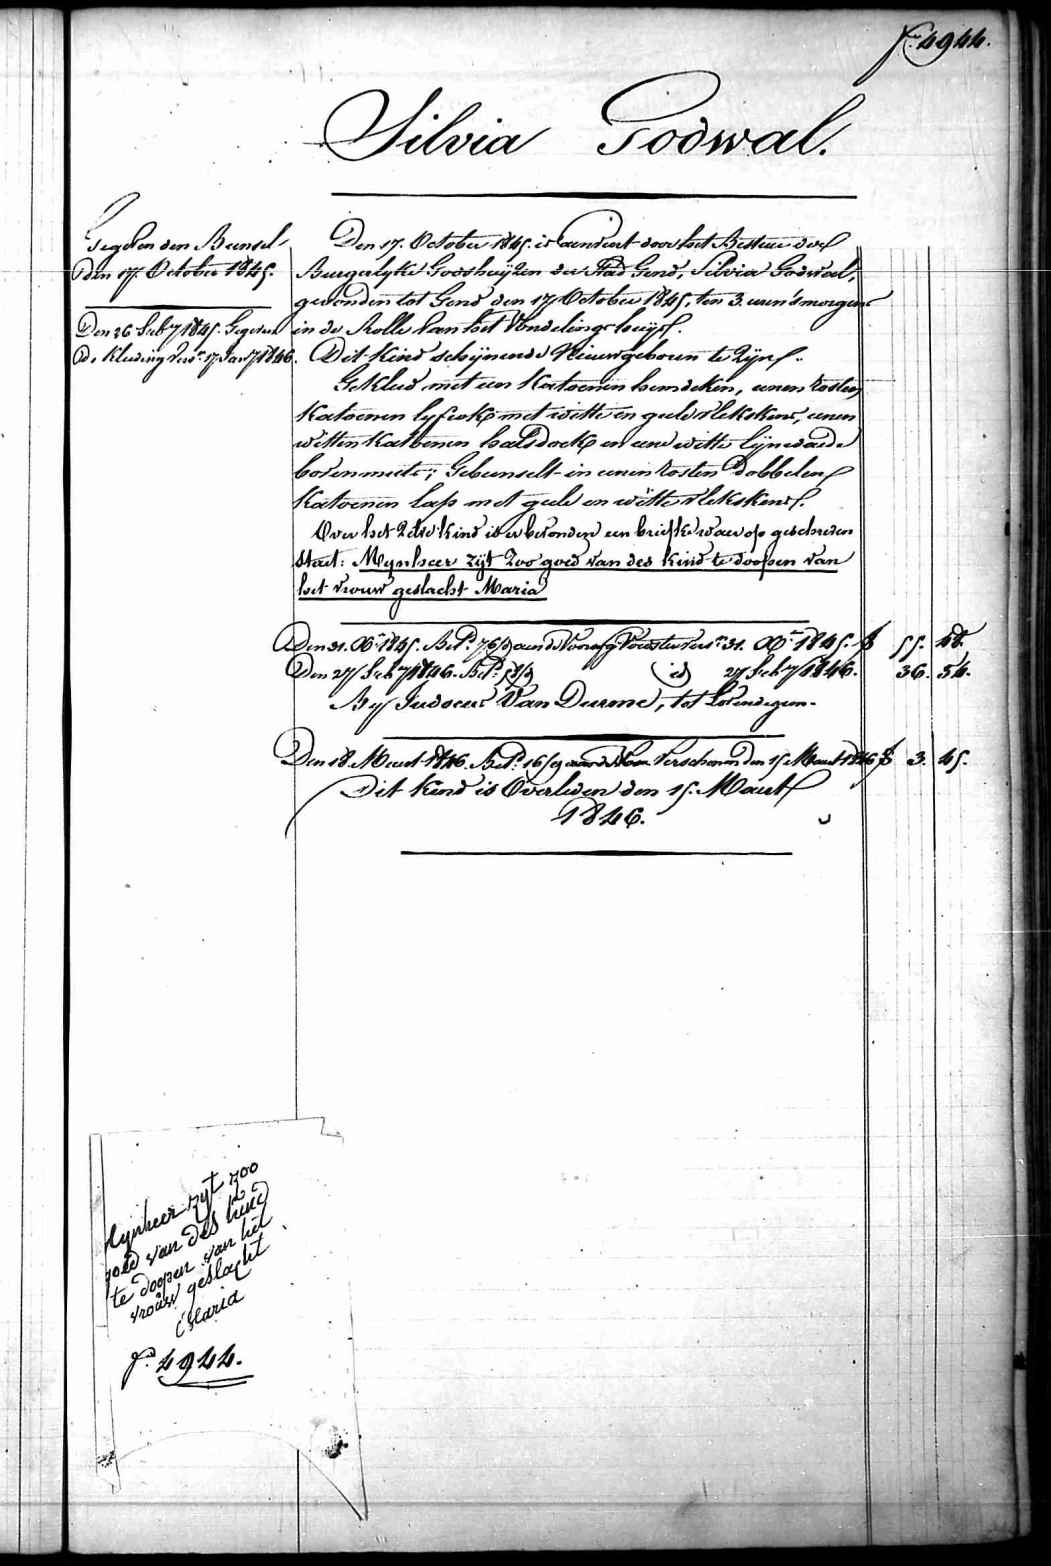 fo. 4944.
Silvia Godwal.
Gegeven den Bunsel
den 17. October 1845.
Den 26 Feb 7 1845. Gegeven
de Kleeding vers. 17 Jan 7 1846.
Den 17. October 1845. is aenveert door het Bestuer der
Burgerlyke Godshuyzen der Stad Gend, Silvia Godwal,
gevonden tot Gend den 17 October 1845, ten 3. uren 's morgens
in de Rolle van het Vondelingshuys.
Dit Kind schynende Nieuwgeboren te Zyn.
Gekleed met een Katoenen hemdeken, eenen rosten
Katoenen lyfrok met witte en geele vlekskens, eenen
witten Katoenen halsdoek en eene witte lynwaede
bovenmuts; Gebunselt in eenen rosten Dobbelen
Katoenen lap met geele en witte vlekskens.
Over het Zelve Kind is er bevonden een briefke waer op geschreven
staet: Mynheer zyt Zoo goed van des kind te doopen van
het vrouw geslacht Maria
Den 31. Xbr. 1845. Bet. 76/9 aen de Voorsg. Voedster vers. 31. Xbr. 1845. f 55. 48.
Den 27 Feb 7 1846. Bet. 58/9 id 27 Feb 7 1846. 36. 54.
By Judocus Van Durme, tot Lovendegem.
Den 18. Maert 1846. Bet. 16/9 Verschenen den 15 Maert 1846 f 3. 45.
Dit Kind is Overleden den 15. Maert
1846.
Mynheer zyt zoo
goed van des kind
te doopen van het
vrouw geslacht
Maria
fo. 4944.